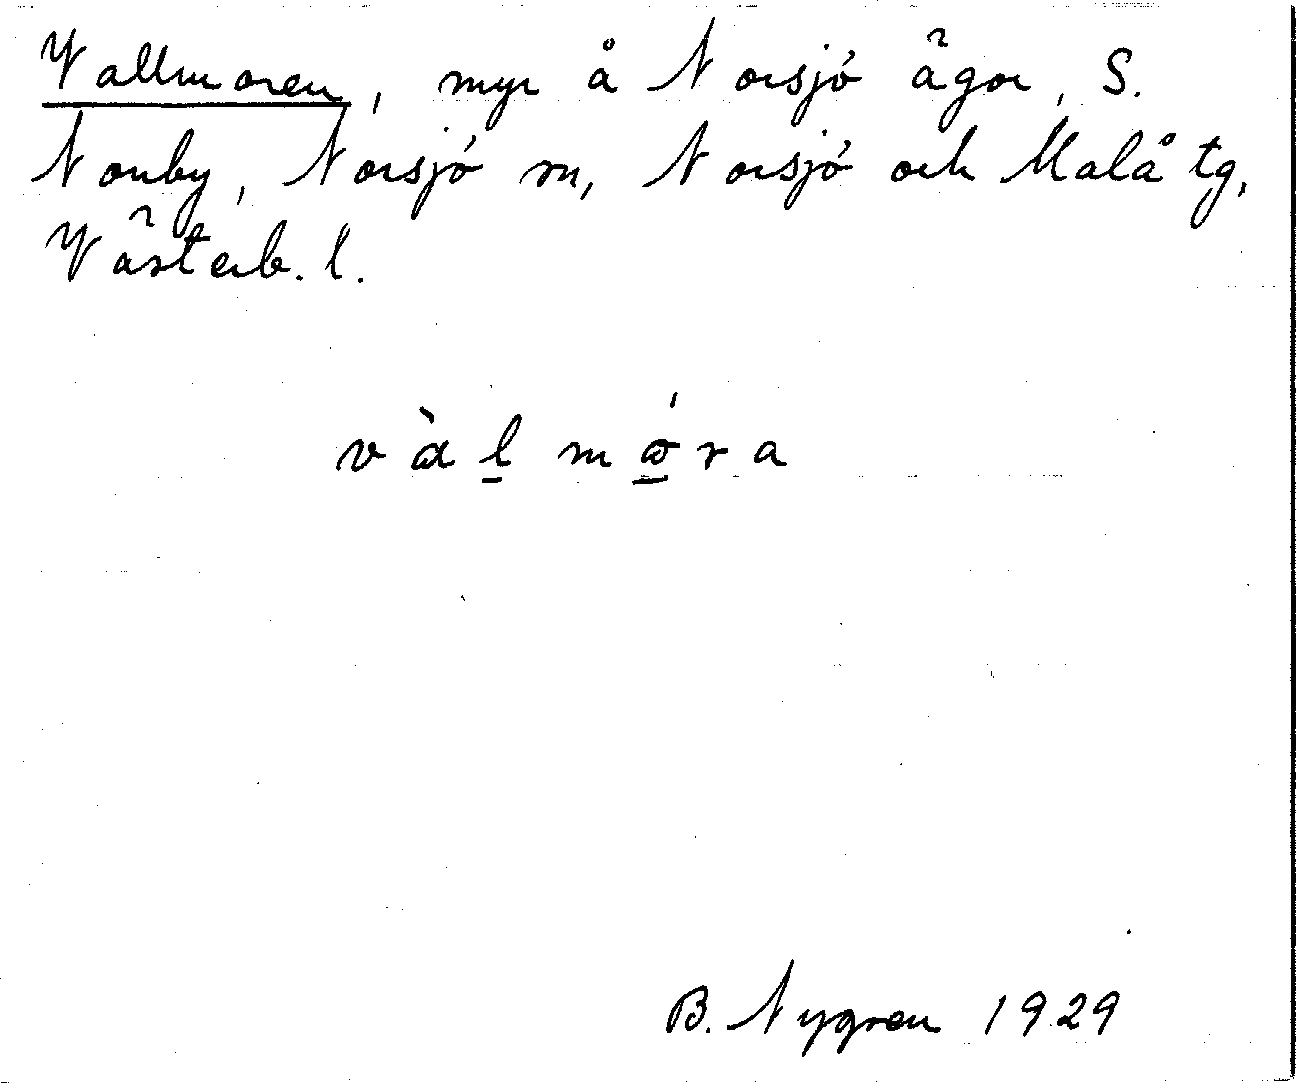 Vallmoren, myr å Norsjö ägor, S.
Norrby, Norsjö sn, Norsjö och Malå tg,
Västerb. l.
và l̲ m ó̲ r a
B. Nygren 1929